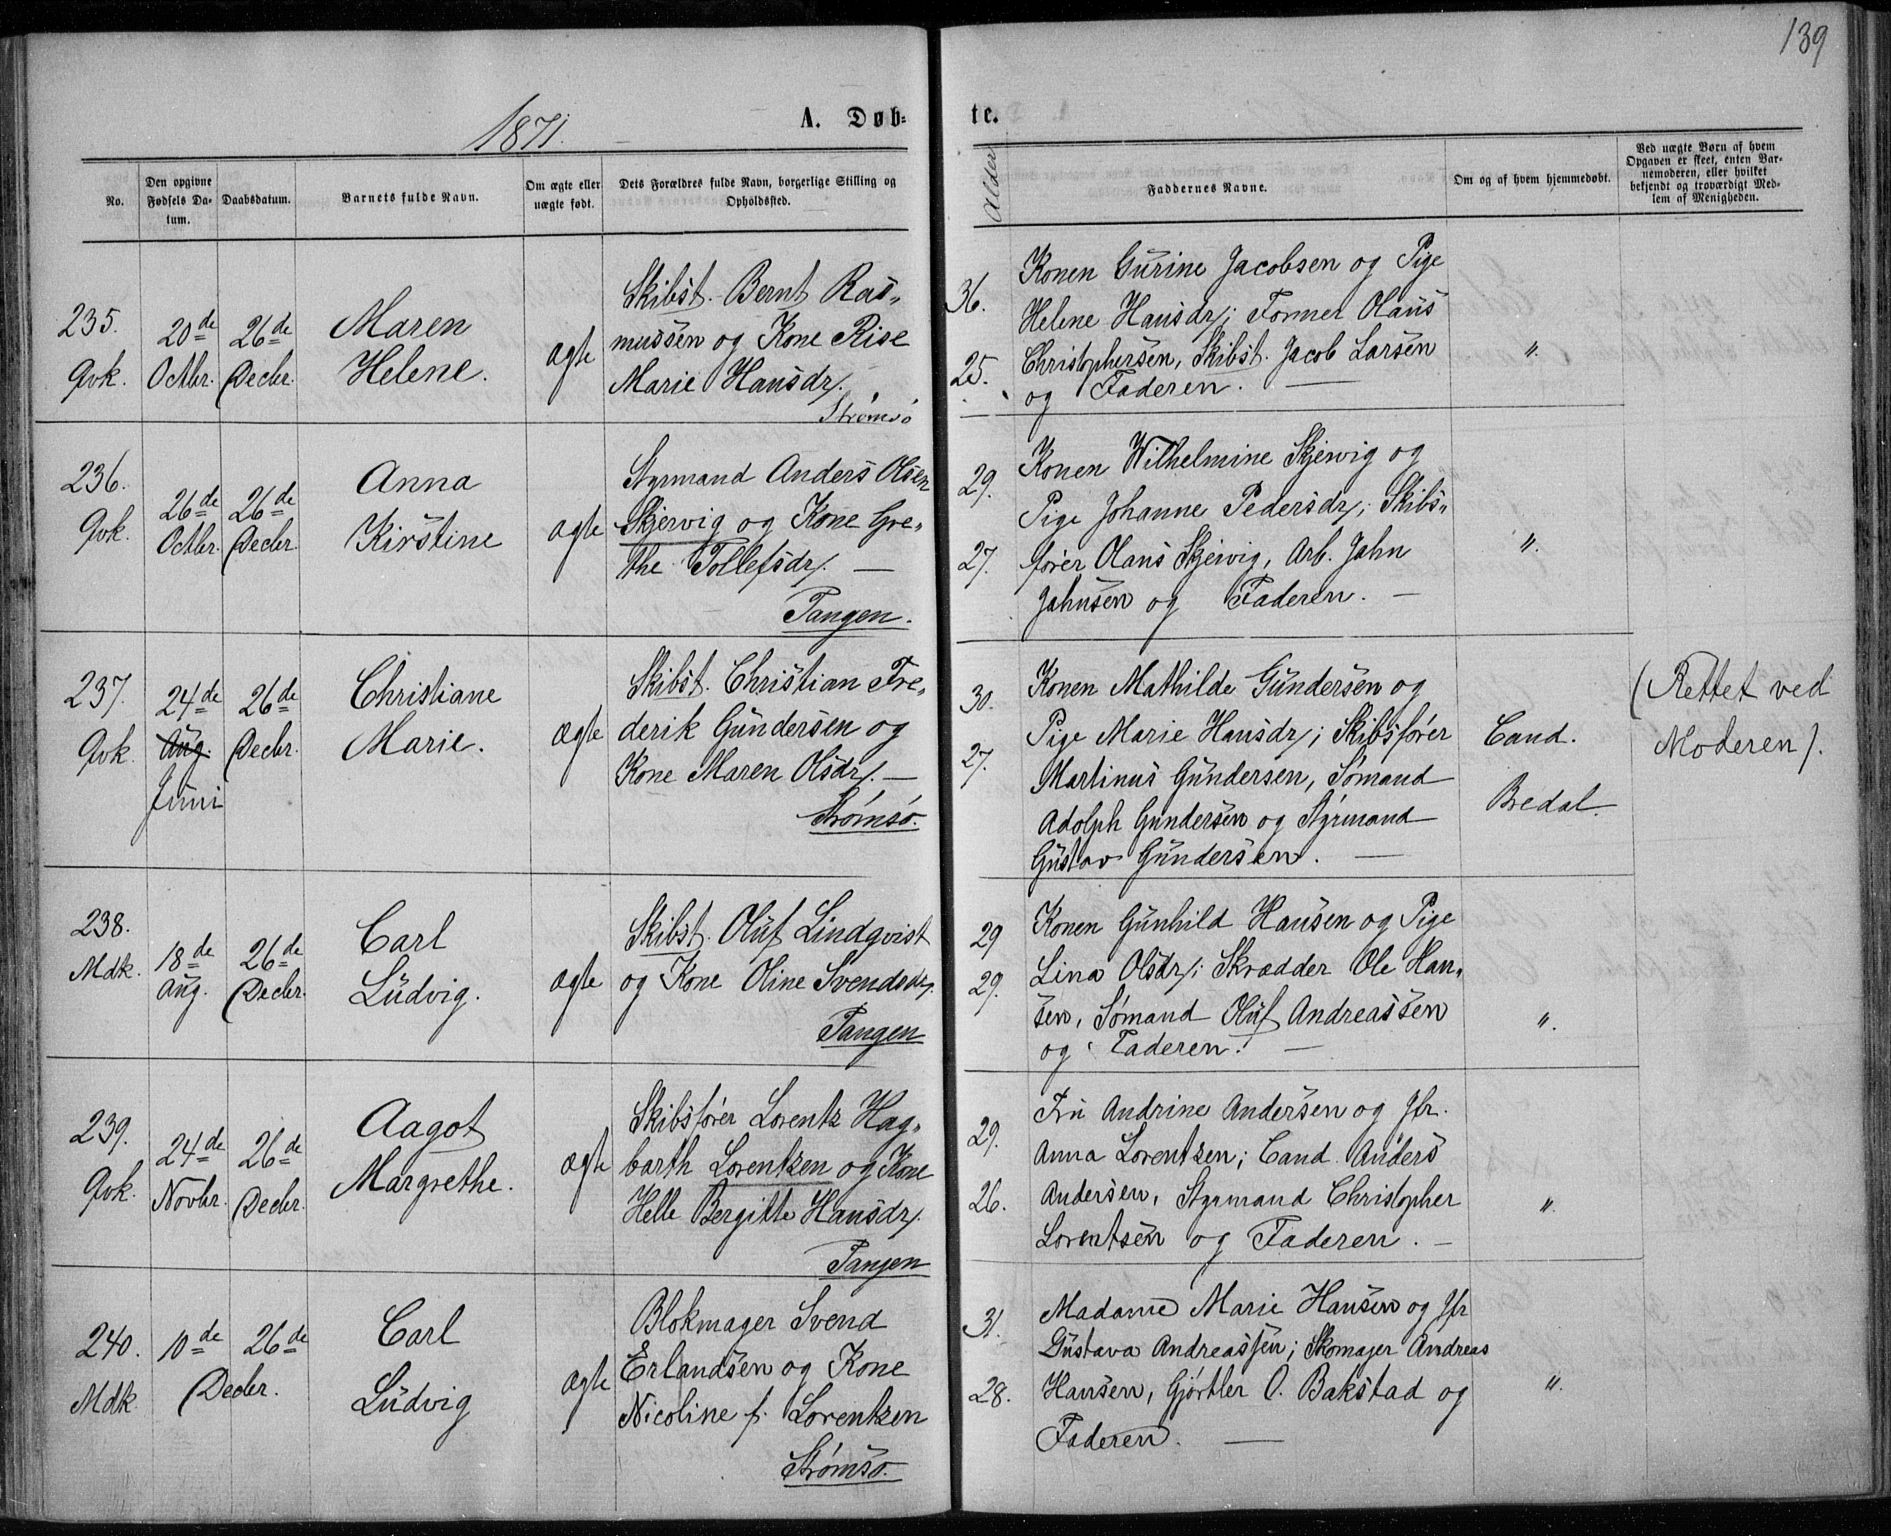 139
1871.
A. Døb-
te.
No.
Den opgivne
Fødsels Da-
tum.
Daabsdatum.
Barnets fulde Navn.
Om ægte eller
uægte født.
Dets Forældres fulde Navn, borgerlige Stilling og
Opholdssted.
Alder
Faddernes Navne.
Om og af hvem hjemmedøbt.
Ved uægte Børn af hvem
Opgaven er skeet, enten Bar-
nemoderen, eller hvilket
bekjendt og troværdigt Med-
lem af Menigheden.
235.
Qvk.
20de
Octbr.
26de
Decbr.
Maren
Helene.
ægte
Skibst. Bernt Ras-
mussen og Kone Rise
Marie Hansdr.
Strømsö
36.
25.
Konen Gurine Jacobsen og Pige
Helene Hansdr; Former Olaus
Christophersen, Skibst. Jacob Larsen
og Faderen. —
"
236.
Qvk.
26de
Octbr.
26de
Decbr.
Anna
Kirstine
ægte
Styrmand Anders Olsen
Skjervig og Kone Gre-
the Tollefsdr. —
Tangen.
29.
27.
Konen Wilhelmine Skjervig og
Pige Johanne Pedersdr; Skibs-
förer Olaus Skjervig, Arb. Jahn
Jahnsen og Faderen. —
"
237.
Qvk.
24de
Aug.
Juni
26de
Decbr.
Christiane
Marie.
ægte
Skibst. Christian Fre-
derik Gundersen og
Kone Maren Olsdr. —
Strömsö.
30.
27.
Konen Mathilde Gundersen og
Pige Marie Hansdr; Skibsförer
Martinus Gundersen, Sömand
Adolph Gundersen og Styrmand
Gustav Gundersen. —
Cand.
Bredal.
(Rettet ved
Moderen).
238.
Mdk.
18de
Aug.
26de
Decbr.
Carl
Ludvig.
ægte
Skibst. Oluf Lindqvist
og Kone Oline Svendsdr.
Tangen
29
29.
Konen Gunhild Hansen og Pige
Lina Olsdr; Skrædder Ole Han-
sen, Sömand Oluf Andreassen
og Faderen. —
"
239.
Qvk.
24de
Novbr.
26de
Decbr.
Aagot
Margrethe.
ægte
Skibsförer Lorentz Hag-
barth Lorentzen og Kone
Helle Bergitte Hansdr.
Tangen
29.
26.
Fru Andrine Andersen og Jfr.
Anna Lorentzen; Cand. Anders
Andersen, Styrmand Christopher
Lorentsen og Faderen. —
"
240.
Mdk
10de
26de
Decbr.
Carl
Ludvig
ægte
Blokmager Svend
Erlandsen og Kone
Nicoline f. Lorentzen
Strömsö.
31.
28.
Madame Marie Hansen og Jfr
Gustava Andreassen; Skomager Andreas
Hansen, Gjörtler O. Bakstad og
Faderen. —
"